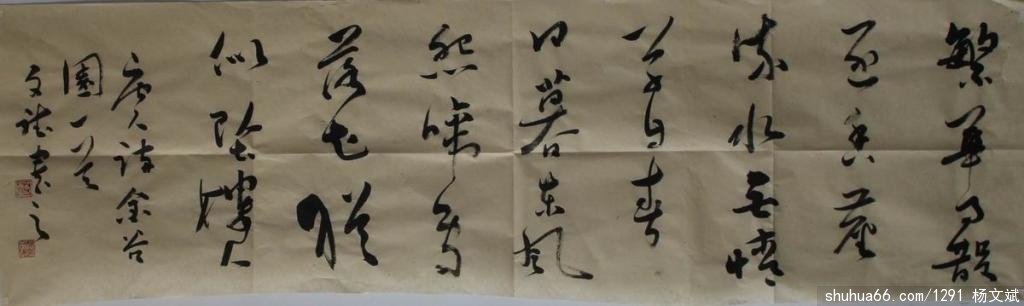 繁華事散
逐香塵
流水無情
草自春
日暮東風
怨啼鳥
落花猶
似墜樓人
唐人詩金谷
園一首
文斌書之
shuhua66.com/1291 杨文斌